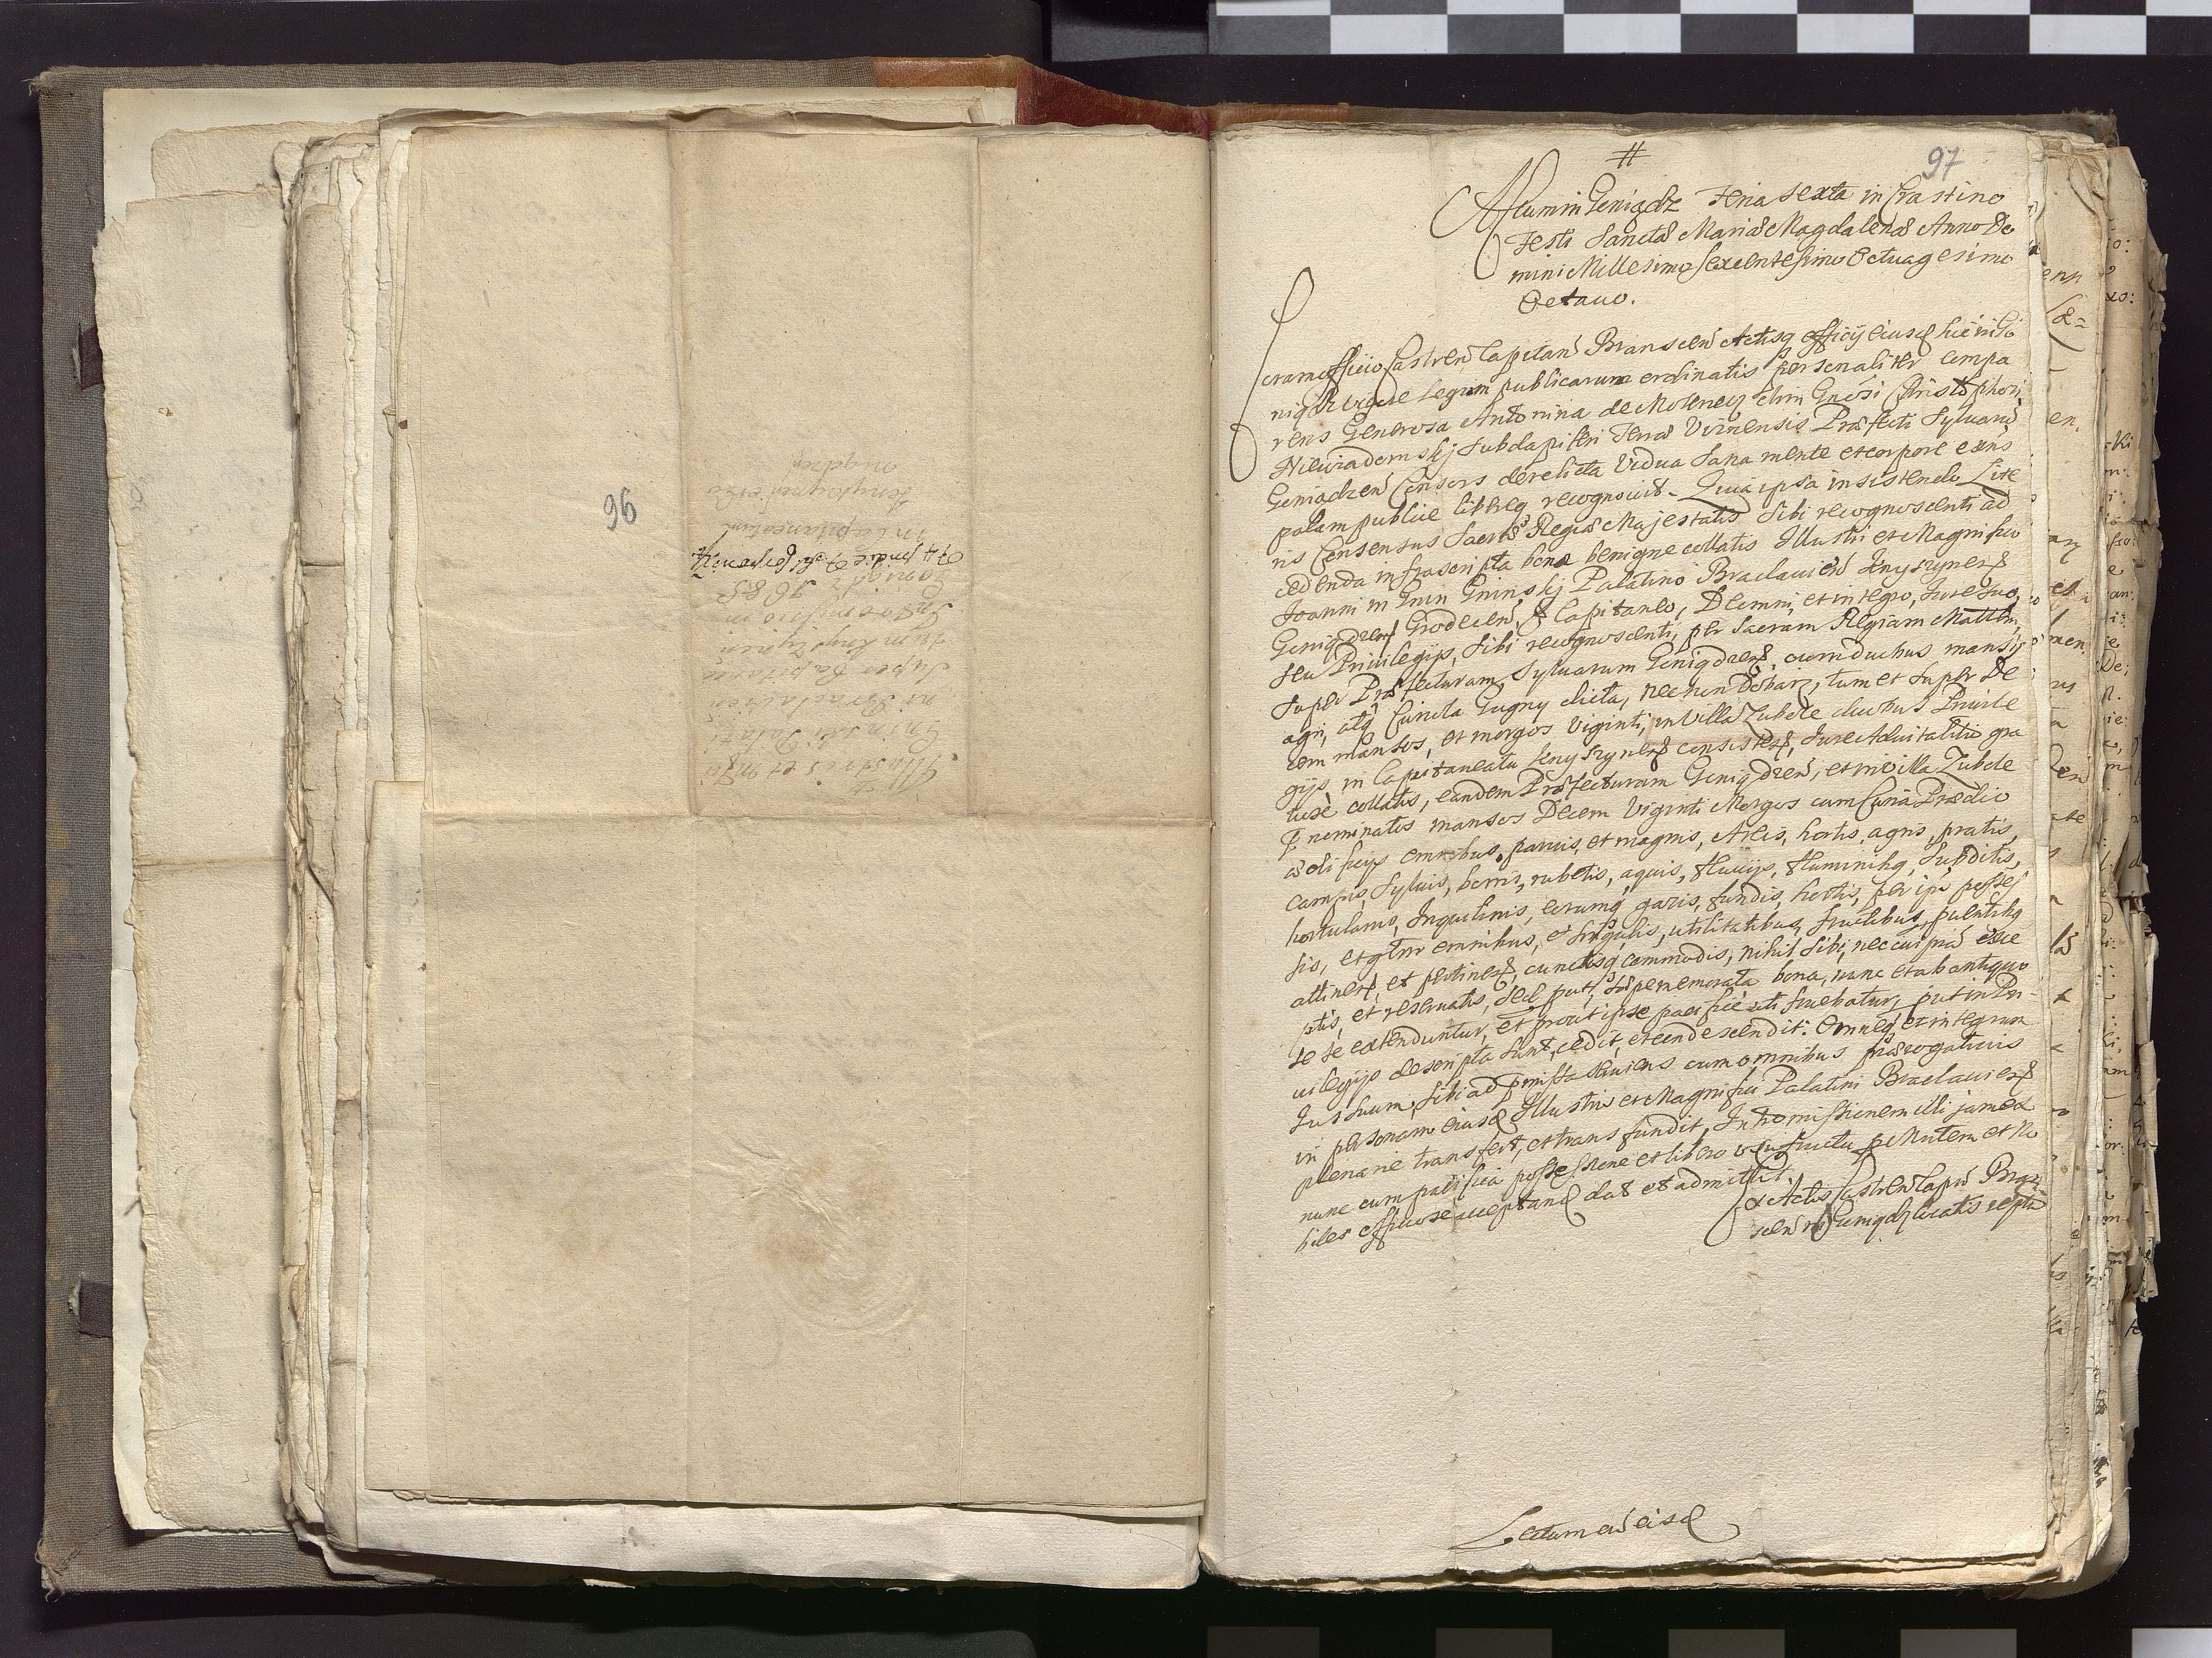 96
Illustris et Mgfci
Gninski Palati
ni Braclavien
super Capitanea
tum Knyszynen
Intromissio in
1685
in Capitaneatum
Knyszynen et Go
niądzen
97
#
Actum in Goniądz Feria sexta in Crastino
Festi Sanctæ Mariæ Magdalenæ Anno Do
mini Millesimo sexcentesimo Octuagesimo
Octauo.
Coram officio Castren Capitan Branscen Actisq officij eiusd hic in Go
niądz vigore Legum publicarum ordinatis personaliter compa
rens Generosa Antonina de Mosenecz olim Gnosi Christophori
Niewiadomskj Subdapiferi Terræ Viznensis Præfecti Syluarũ
Goniądzen Consors derelicta Vidua sana mente et corpore exñs
palam publice libreq recognouit. Quia ipsa insistendo Lite
ris Consensus Sacræ Regiæ Majestatis sibi recognoscenti ad
cedenda infrascripta bona benigne collatis Illustri et Magnifico
Joanni in Gnin Gninskj Palatino Braclauien Knyszynen
Goniądzen Grodecen & Capitaneo, Omni et integro, Jure suo,
seu Priuilegijs, sibi recognoscenti, per Sacram Regiam Mattem,
super Præfecturam Syluarum Goniądzen, cum duobus mansis
agri, atq Cuncta Gugny dicta, nec non Dobarz, tum et super De
cem mansos, et morgos viginti, in Villa Zubole duobus Priuile
gijs in Capitaneatu Knyszynen consisten, Jure Aduitalitio gra
tiose collatis, eandem Præfecturam Goniądzen, et in villa Zubole
nominatos mansos Decem Viginti Morgos cum Curia Prædio
ædificijs omnibus, paruis, et magnis, Areis, hortis, agris, pratis,
campis, Syluis, borris, rubetis, aquis, fluuijs, fluminibq, Subditis,
hortulanis, Inquilinis, eorumq gazis, fundis, hortis, per ips posses
sis, et gñtr omnibus, et singulis, utilitatibus, fructibus, puentibq
attinen, et pertinen, cunctisq commodis, nihil sibi, nec cuipiã exce
ptis, et reseruatis, sed put, sæpememorata bona, nunc et ab antiquo
se se extenduntur, et prout ipse pacifice uti fruebatur, put in Pri-
uilegijs descripta sunt, cedit, et condescendit: Omneq et integrum
Jus suum, sibi ad pmissa seruiens cum omnibus prærogatiuis
in personam eiusd Illustris et Magnifici Palatini Braclauien
plenarie transfert, et transfundit, Intromissionem illi jam ex
nunc cum pacifica possessione et libero usufructu p Mntem et No
biles officiose acceptand dat et admittit.
Ex Actis Castren Capit Bran
scen in Goniądz locatis reptũ
Lectum cũ eisd